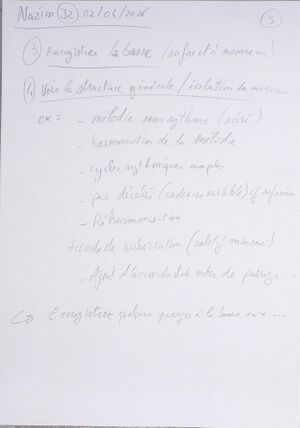 Nazim J2 02/04/2026
3
③ Enregistrer la basse (
④ Voir la structure générale / évolution du morceau
ex = - mélodie sans rythme (
- harmonisation de la mélodie
- cycles rythmiques simples
- pas décalés (cadences variable)
- Réharmonisation
Accords de substitution (relatif mineur)
- Ajout d'accords de notes de passage ...
Enregistrer quelques à la basse ...